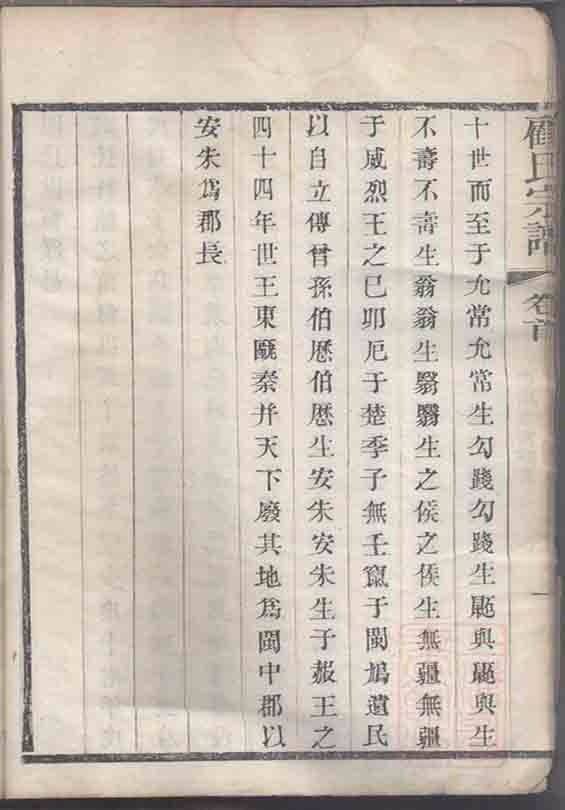 十世而至于允常允常生勾踐勾踐生鼫與鼫與生
不壽不壽生翁翁生翳翳生之侯之侯生無疆無疆
于威烈王之己卯厄于楚季子無壬竄于閩鳩遺民
以自立傳曾孫伯厯伯厯生安朱安朱生于赧王之
四十四年世王東甌秦并天下廢其地爲閩中郡以
安朱爲郡長
氏宗譜
卷首
一